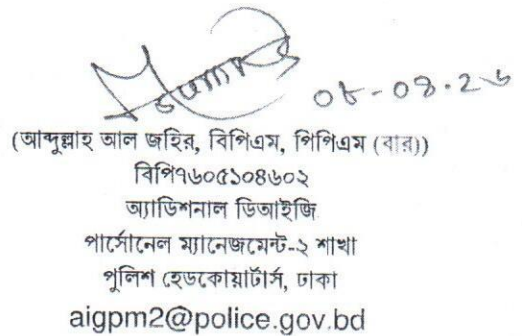 ০৮-০৪-২৬
(আব্দুল্লাহ আল জহির, বিপিএম, পিপিএম (বার))
বিপি৭৬০৫১০৪৬০২
অ্যাডিশনাল ডিআইজি
পার্সোনেল ম্যানেজমেন্ট-২ শাখা
পুলিশ হেডকোয়ার্টার্স, ঢাকা
aigpm2@police.gov.bd